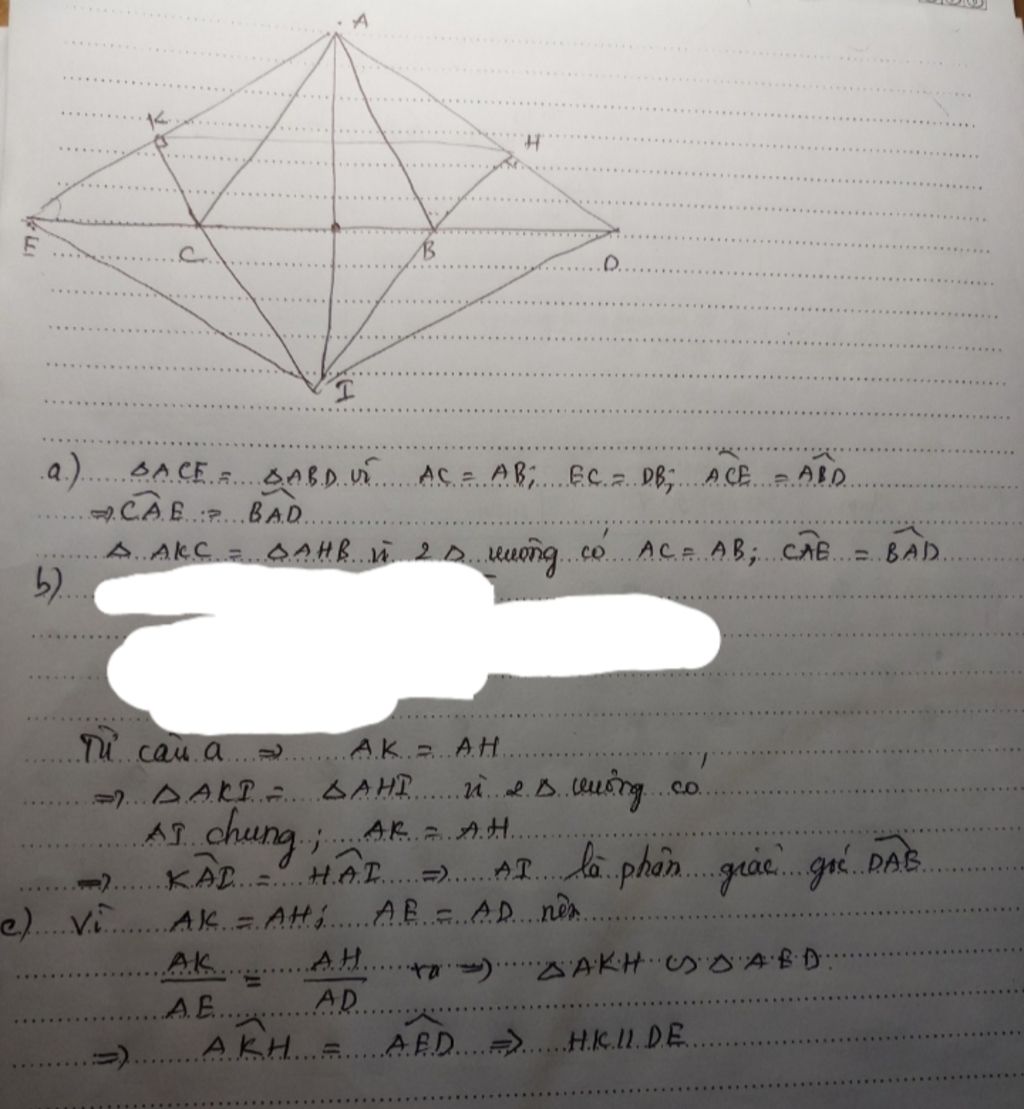 A
K
H
E
C
B
D
I
a) ΔACE = ΔABD vì AC = AB; EC = DB; ACE^ = ABD^
⇒ CAE^ = BAD^
Δ AKC = ΔAHB vì 2 Δ vuông có AC = AB; CAE^ = BAD^
b)
Từ câu a ⇒ AK = AH
⇒ ΔAKI = ΔAHI vì 2 Δ vuông có
AI chung; AK = AH
⇒ KAI^ = HAI^ ⇒ AI là phân giác góc DAE^
c) Vì AK = AH; AE = AD nên
AK/AE = AH/AD ⇒ ΔAKH ∽ ΔAED.
⇒ AKH^ = AED^ ⇒ HK // DE